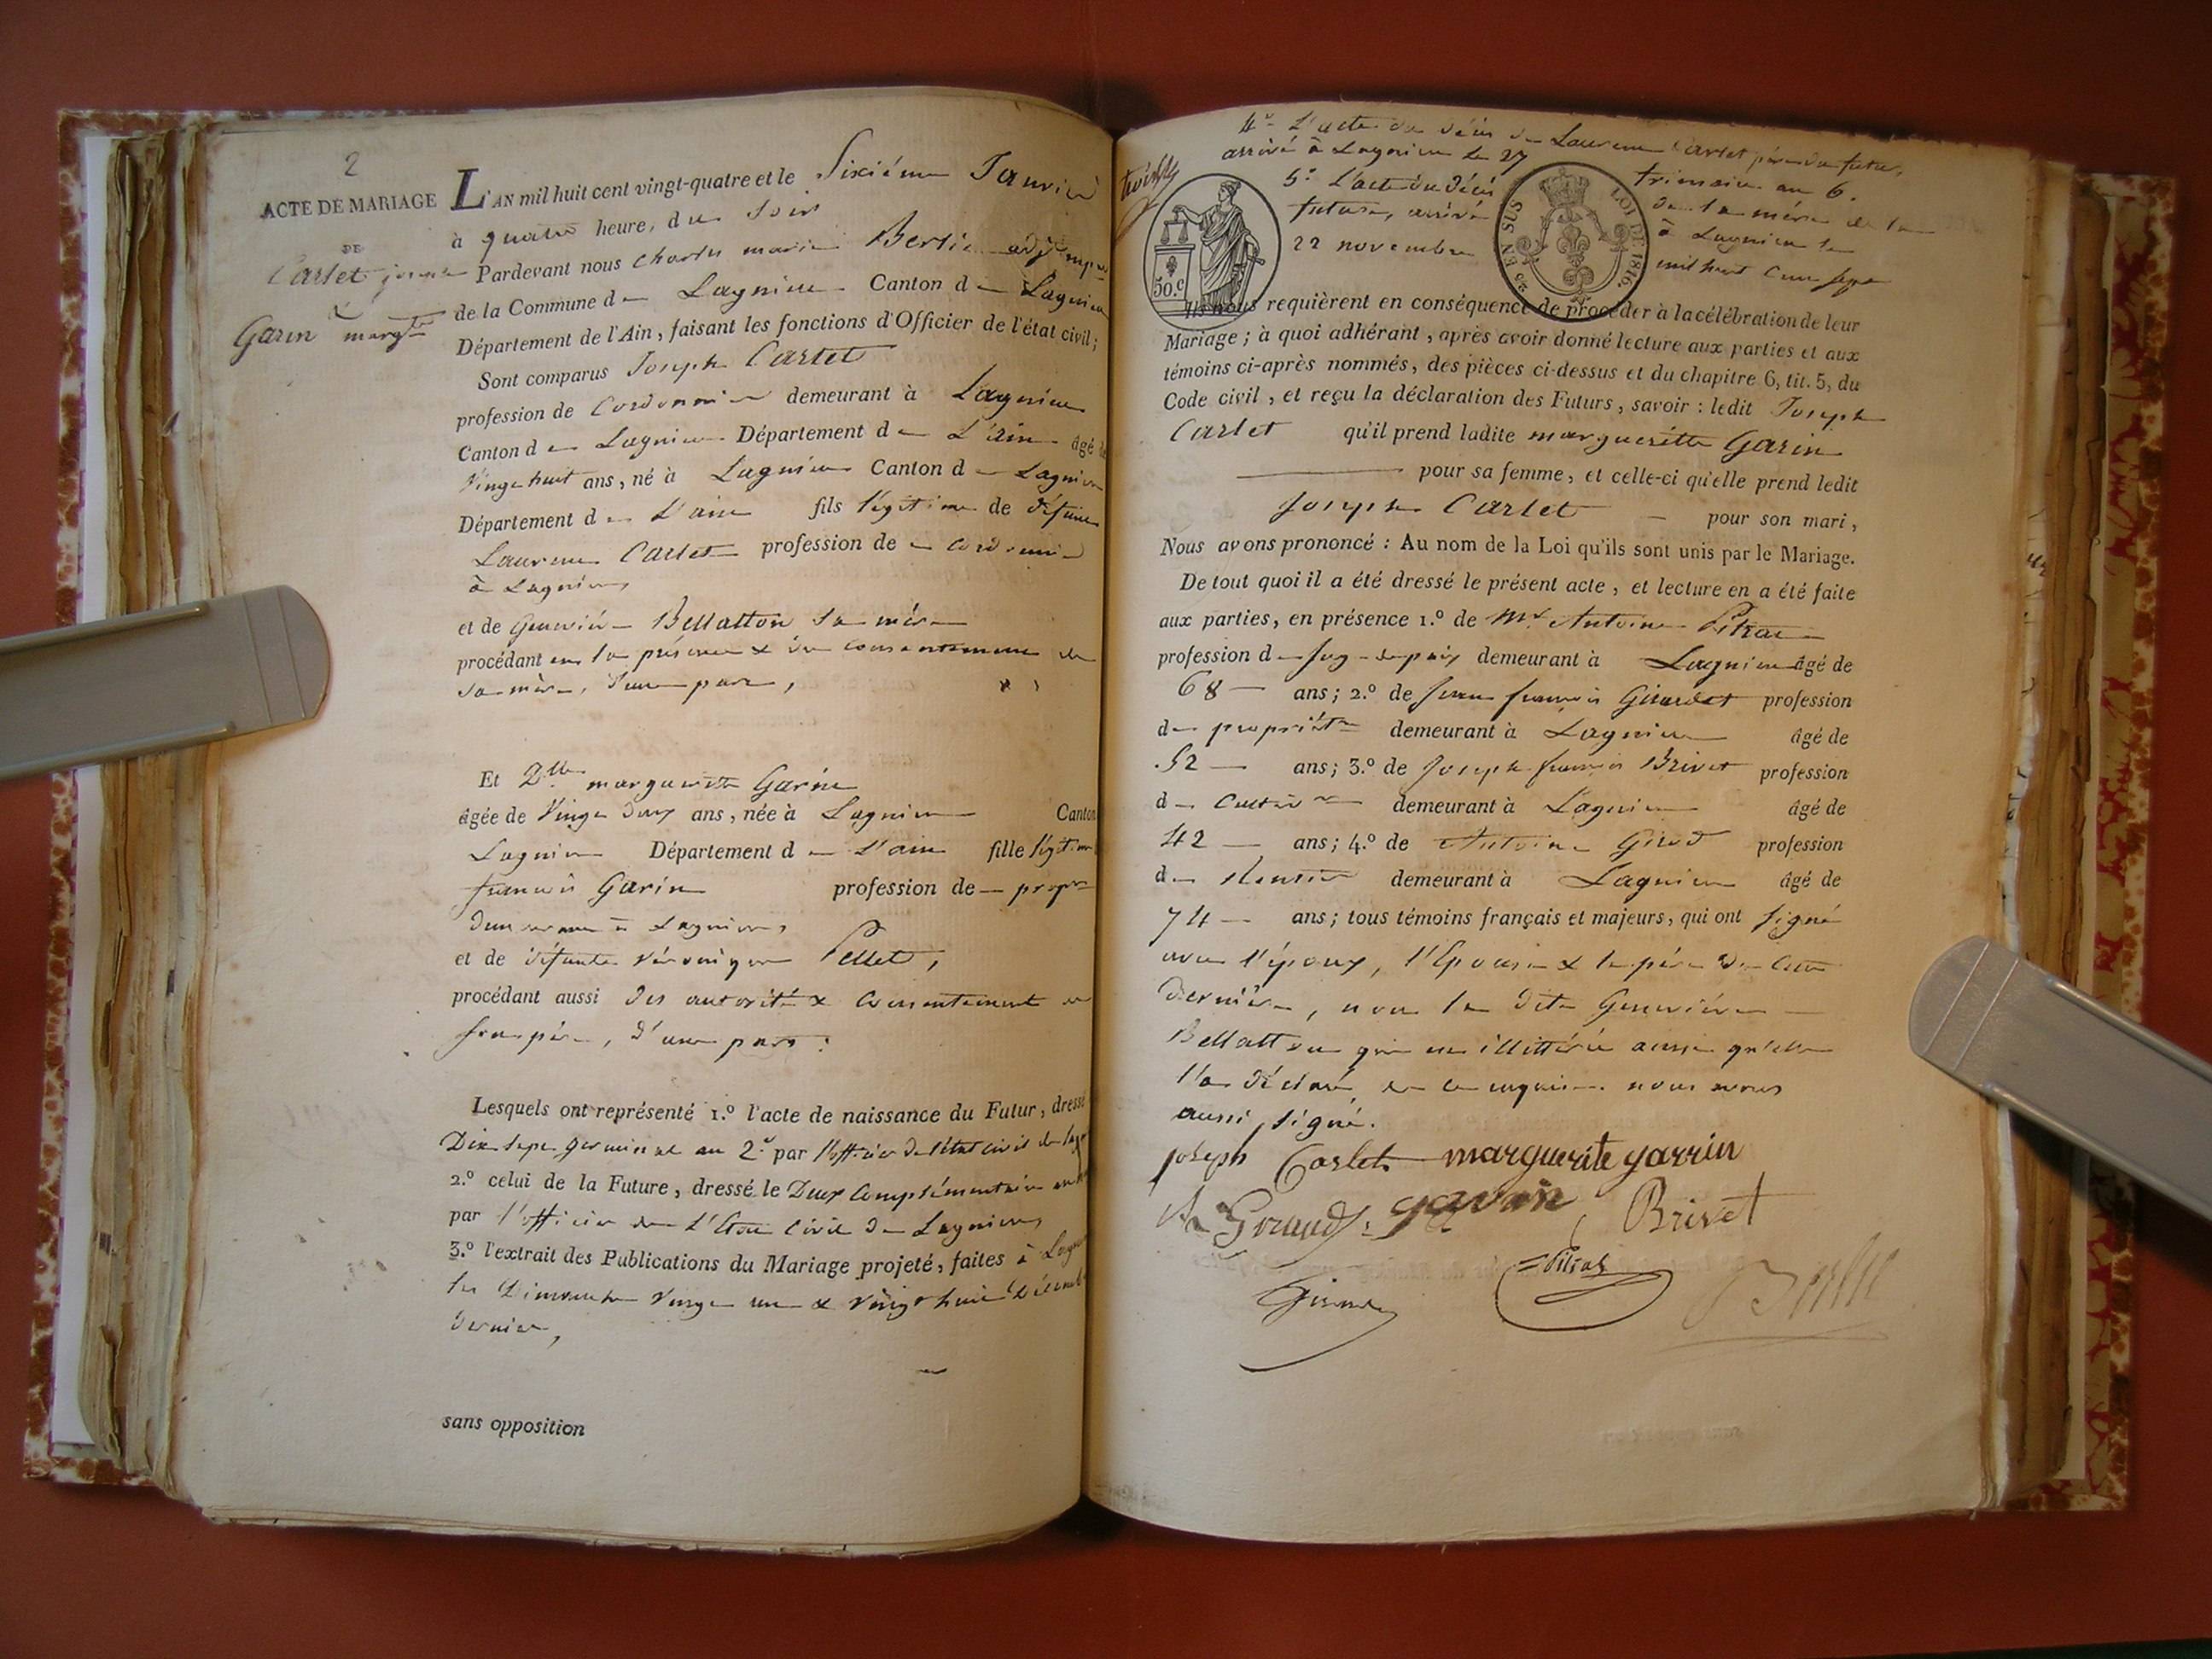 2
ACTE DE MARIAGE
DE
Carlet joseph
&
Garin margte
L'AN mil huit cent vingt-quatre et le Sixiéme Janvier
à quatre heure, du soir
Pardevant nous Charles marie Berlie adjt
de la Commune de Lagnieu Canton de Lagnieu
Département de l'Ain, faisant les fonctions d'Officier de l'état civil;
Sont comparus Joseph Carlet
profession de Cordonnier demeurant à Lagnieu
Canton de Lagnieu Département de L'ain âgé de
Vingt huit ans, né à Lagnieu Canton de Lagnieu
Département de L'ain fils légitime de défunt
Laurent Carlet profession de cordonnier
à Lagnieu
et de Geneviève Bellatton sa mère
procédant en la présence & du consentement de
sa mère, d'une part,
Et Dlle marguerite Garin
âgée de Vingt deux ans, née à Lagnieu Canton
Lagnieu Département de L'ain fille légitime
françois Garin profession de propre
demeurant à Lagnieu,
et de défunte véronique Pellet,
procédant aussi des autorité & consentement de
son père, d'une part:
Lesquels ont représenté 1.º l'acte de naissance du Futur, dressé
Dix sept germinal an 2e par l'officier de l'état civil de
2.º celui de la Future, dressé le Deux Complémentaire an
par l'officier de L'état civil de Lagnieu,
3.º l'extrait des Publications du Mariage projeté, faites à
les Dimanche vingt un & vingt huit Décembre
dernier,
sans opposition
4º L'acte du décès de Laurent Carlet père du futur,
arrivé à Lagnieu le 27 frimaire an 6.
5º L'acte du décès de la mère de la
future, arrivé à Lagnieu le
22 novembre mil huit cent sept
50.c
EN SUS
LOI DE 1816.
Ils nous requièrent en conséquence de procéder à la célébration de leur
Mariage; à quoi adhérant, après avoir donné lecture aux parties et aux
témoins ci-après nommés, des pièces ci-dessus et du chapitre 6, tit. 5, du
Code civil, et reçu la déclaration des Futurs, savoir: ledit Joseph
Carlet qu'il prend ladite marguerite Garin
pour sa femme, et celle-ci qu'elle prend ledit
Joseph Carlet pour son mari,
Nous avons prononcé: Au nom de la Loi qu'ils sont unis par le Mariage.
De tout quoi il a été dressé le présent acte, et lecture en a été faite
aux parties, en présence 1.º de Mr Antoine Pitrat
profession de Juge de paix demeurant à Lagnieu âgé de
68 ans; 2.º de Jean françois Girardet profession
de propriétre demeurant à Lagnieu âgé de
52 ans; 3.º de Joseph françois Brivet profession
de Cultivr demeurant à Lagnieu âgé de
42 ans; 4.º de Antoine Girod profession
de Rentier demeurant à Lagnieu âgé de
74 ans; tous témoins français et majeurs, qui ont signé
avec l'époux, l'épouse & le père de cette
dernière, non la dite Geneviève
Bellatton qui est illittérée ainsi qu'elle
l'a déclaré, de ce enquise. nous avons
aussi signé.
joseph Carlet marguerite garrin
garin Brivet
Pitrat